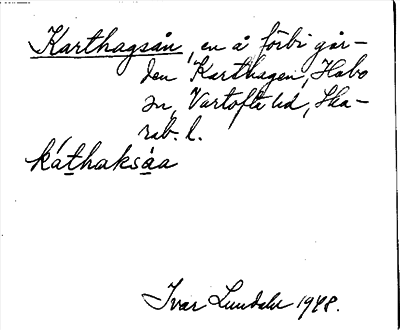 Karthagsån, en å förbi går-
den Karthagen, Habo
sn, Vartofta hd, Ska-
rab. l.
káthaksåa
Ivar Lundahl 1948.